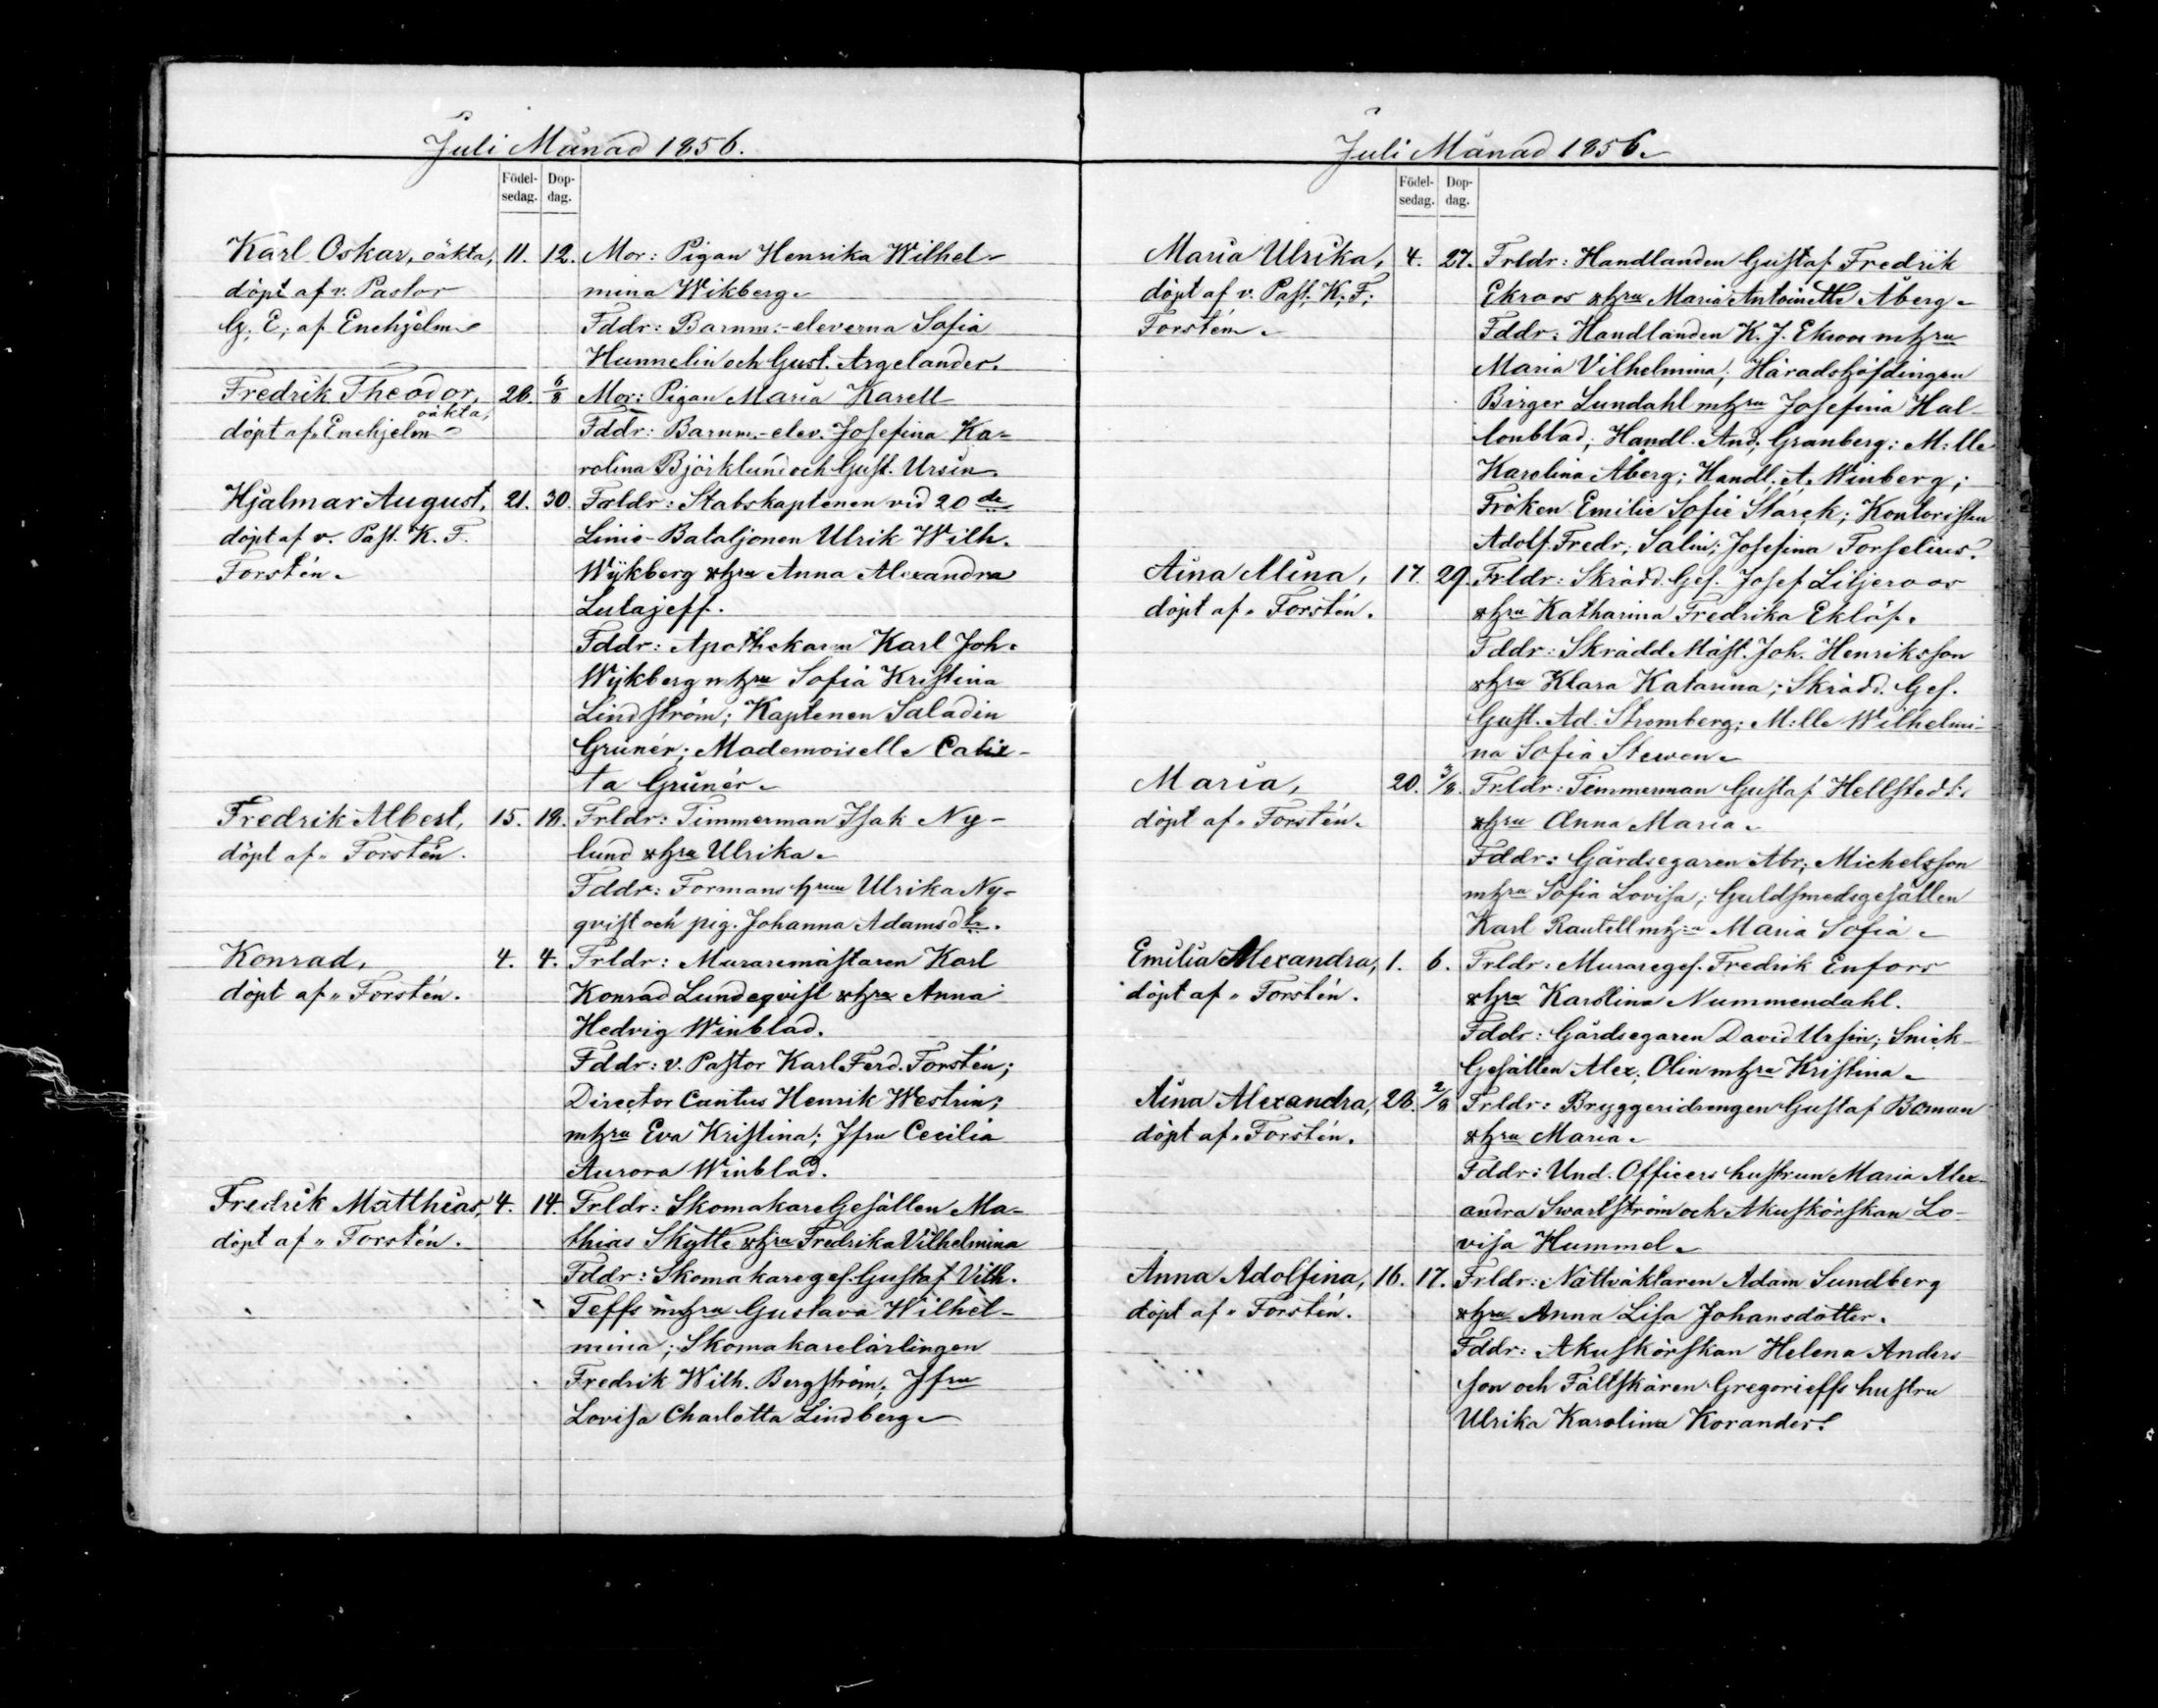 Juli Månad 1856.
Födel-
sedag.
Dop-
dag.
Karl Oskar, oäkta, 11. 12. Mor: Pigan Henrika Wilhel-
döpt af v. Pastor mina Wikberg.
G. E. af Enehjelm Fddr: Barnm.-eleverna Sofia
Hunnelin och Gust. Argelander.
Fredrik Theodor, 26. 6/8 Mor: Pigan Maria Karell
oäkta,
döpt af " Enehjelm Fddr: Barnm.-elev. Josefina Ka-
rolina Björklund och Gust. Ursin.
Hjalmar August, 21. 30. Frldr: Stabskaptenen vid 20 de
döpt af v. Past. K. F. Linie-Bataljonen Ulrik Wilh.
Forstén. Wÿkberg o hru Anna Alexandra
Lutajeff.
Fddr: Apothekaren Karl Joh.
Wÿkberg m hru Sofia Kristina
Lindström; Kaptenen Saladin
Grünér; Mademoiselle Calix-
ta Grünér.
Fredrik Albert, 15. 18. Frldr: Timmerman Isak Ny-
döpt af " Forstén. lund o hru Ulrika.
Fddr: Formans hrun Ulrika Ny-
qvist och pig. Johanna Adamsdtr.
Konrad, 4. 4. Frldr: Muraremästaren Karl
döpt af " Forstén. Konrad Lundeqvist o hru Anna
Hedvig Winblad.
Fddr: v. Pastor Karl Ferd. Forstén;
Director Cantus Henrik Westrin;
mhru Eva Kristina; Jfru Cecilia
Aurora Winblad.
Fredrik Matthias, 4. 14. Frldr: Skomakare Gesällen Ma-
döpt af " Forstén. thias Skytte o hru Fredrika Vilhelmina
Fddr: Skomakareges. Gustaf Vilh.
Teffs mhru Gustava Wilhel-
mina; Skomakarelärlingen
Fredrik Wilh. Bergström; Jfru
Lovisa Charlotta Lindberg.
Juli Månad 1856.
Födel-
sedag.
Dop-
dag.
Maria Ulrika, 4. 27. Frldr: Handlanden Gustaf Fredrik
döpt af v. Past. K. F. Ekroos o hru Maria Antoinette Åberg.
Forstén. Fddr: Handlanden K. J. Ekroos mhru
Maria Vilhelmina; Häradshöfdingen
Birger Lundahl mhru Josefina Hal-
lonblad; Handl. And. Granberg; M:lle
Karolina Åberg; Handl. A. Winberg;
Fröken Emilie Sofie Starck; Kontoristen
Adolf Fredr. Salin; Josefina Forselius.
Aina Alina, 17. 29. Frldr: Skrädd. Ges. Josef Liljeroos
döpt af " Forstén. o hru Katharina Fredrika Eklöf.
Fddr: Skrädd Mäst. Joh. Henriksson
o hru Klara Katarina; Skrädd. Ges.
Gust. Ad. Stromberg; M:lle Wilhelmi-
na Sofia Stewen.
Maria, 20. 3/8. Frldr: Timmerman Gustaf Hellstedt
döpt af " Forstén. o hru Anna Maria.
Fddr: Gårdsegaren Abr. Michelsson
mhru Sofia Lovisa; Guldsmedsgesällen
Karl Rautell mhru Maria Sofia.
Emilia Alexandra, 1. 6. Frldr: Murareges. Fredrik Enfors
döpt af " Forstén. o hru Karolina Nummendahl.
Fddr: Gårdsegaren David Ursin; Snick-
Gesällen Alex. Olin mhru Kristina.
Aina Alexandra, 28. 2/8 Frldr: Bryggeridrengen Gustaf Boman
döpt af " Forstén. o hru Maria.
Fddr: Und. Officers hustrun Maria Alex-
andra Swartström och Akuskörskan Lo-
visa Hummel.
Anna Adolfina, 16. 17. Frldr: Nattväktaren Adam Sundberg
döpt af " Forstén. o hru Anna Lisa Johansdotter.
Fddr: Akuskörskan Helena Anders-
son och Fältskären Gregorieffs hustru
Ulrika Karolina Korander.